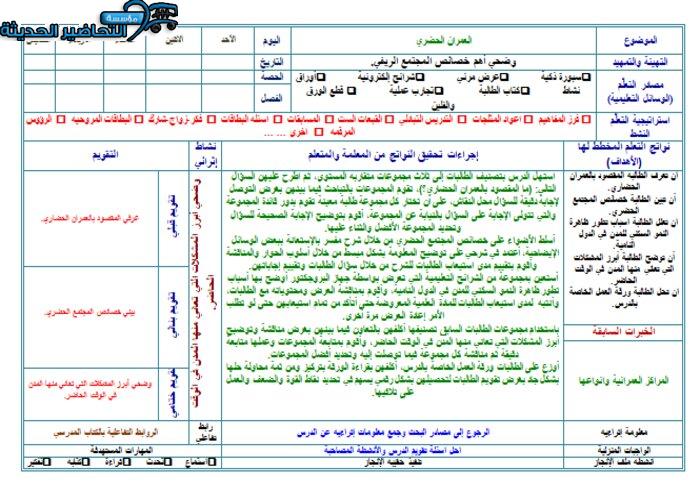 مؤسسة
التحاضير الحديثة
الموضوع
العمران الحضري
اليوم
الأحد
الاثنين
التهيئة والتمهيد
وضحي أهم خصائص المجتمع الريفي.
التاريخ
مصادر التعلم
(الوسائل التعليمية)
سبورة ذكية
عرض مرئي
شرائح إلكترونية
أوراق
نشاط
كتاب الطالبة
تجارب عملية
قطع الورق
والفلين
الحصة
الفصل
استراتيجية التعلم
النشط
فرز المفاهيم
اعواد المثلجات
التدريس التبادلي
القبعات الست
المسابقات
اسئله البطاقات
فكر-زاوج-شارك
البطاقات المروحيه
الرؤوس
المرقمه
اخرى ... ...
نواتج التعلم المخطط لها
(الأهداف)
إجراءات تحقيق النواتج من المعلمة والمتعلم
نشاط
إثرائي
التقويم
أن تعرف الطالبة المقصود بالعمران
الحضاري.
أن تبين الطالبة خصائص المجتمع
الحضري.
أن تعلل الطالبة أسباب تطور ظاهرة
النمو السكني للمدن في الدول
النامية.
أن توضح الطالبة أبرز المشكلات
التي تعاني منها المدن في الوقت
الحاضر.
ان تحل الطالبة ورقة العمل الخاصة
بالدرس.
الخبرات السابقة
المراكز العمرانية وانواعها
استهل الدرس بتصنيف الطالبات إلى ثلاث مجموعات متقاربه المستوى, ثم اطرح عليهن السؤال
التالي: (ما المقصود بالعمران الحضاري؟)، تقوم المجموعات بالتباحث فيما بينهن بغرض التوصل
لإجابة دقيقة للسؤال محل النقاش, على أن تختار كل مجموعة طالبة معينة تقوم بدور قائدة المجموعة
والتي تتولى الإجابة على السؤال بالنيابة عن المجموعة. أقوم بتوضيح الإجابة الصحيحة للسؤال
وتحديد المجموعة الأفضل والثناء عليها.
أسلط الأضواء على خصائص المجتمع الحضري من خلال شرح مفسر بالإستعانه ببعض الوسائل
الإيضاحية, أعتمد في شرحي على توضيح المعلومة بشكل مبسط من خلال أسلوب الحوار والمناقشة
وأقوم بتقييم مدى استيعاب الطالبات للشرح من خلال سؤال الطالبات وتقييم إجاباتهن.
أستعين بمجموعة من الشرائح التعليمية التي تعرض بواسطة جهاز البروجكتور اوضح بها أسباب
تطور ظاهرة النمو السكني للمدن في الدول النامية. وأقوم بمناقشة العرض ومحتوياته مع الطالبات,
وأنتبه لمدى استيعاب الطالبات للمادة العلمية المعروضة حتى أتأكد من تمام استيعابهن حتى لو تطلب
الأمر إعادة العرض مرة أخرى.
باستخدام مجموعات الطالبات السابق تصنيفها أكلفهن بالتعاون فيما بينهن بغرض مناقشة وتوضيح
أبرز المشكلات التي تعاني منها المدن في الوقت الحاضر, وأقوم بمتابعه المجموعات وعملها متابعة
دقيقة ثم مناقشة كل مجموعة فيما توصلت إليه وتحديد أفضل المجموعات.
أوزع على الطالبات ورقة العمل الخاصة بالدرس, أكلفهن بقراءة الورقة بتركيز ومن ثمة محاولة حلها
بشكل جاد بغرض تقويم الطالبات لتحصيلهن بشكل رقمي يسهم في تحديد نقاط القوة والضعف والعمل
على تلافيها.
وضحي أبرز المشكلات التي تعاني منها المدن في الوقت الحاضر.
تقويم قبلي
عرفي المقصود بالعمران الحضاري.
تقويم بنائي
بيني خصائص المجتمع الحضري.
تقويم ختامي
وضحي أبرز المشكلات التي تعاني منها المدن
في الوقت الحاضر.
معلومة إثرائيه
الرجوع إلى مصادر البحث وجمع معلومات إثرائيه عن الدرس
رابط
تفاعلي
الروابط التفاعلية بالكتاب المدرسي
الواجبات المنزلية
احل اسئلة تقويم الدرس والأنشطة المصاحبة
المهارات المستهدفة
انشطه ملف الإنجاز
تنفيذ حقيبه الإنجاز
استماع
تحدث
قراءة
كتابه
تفكير